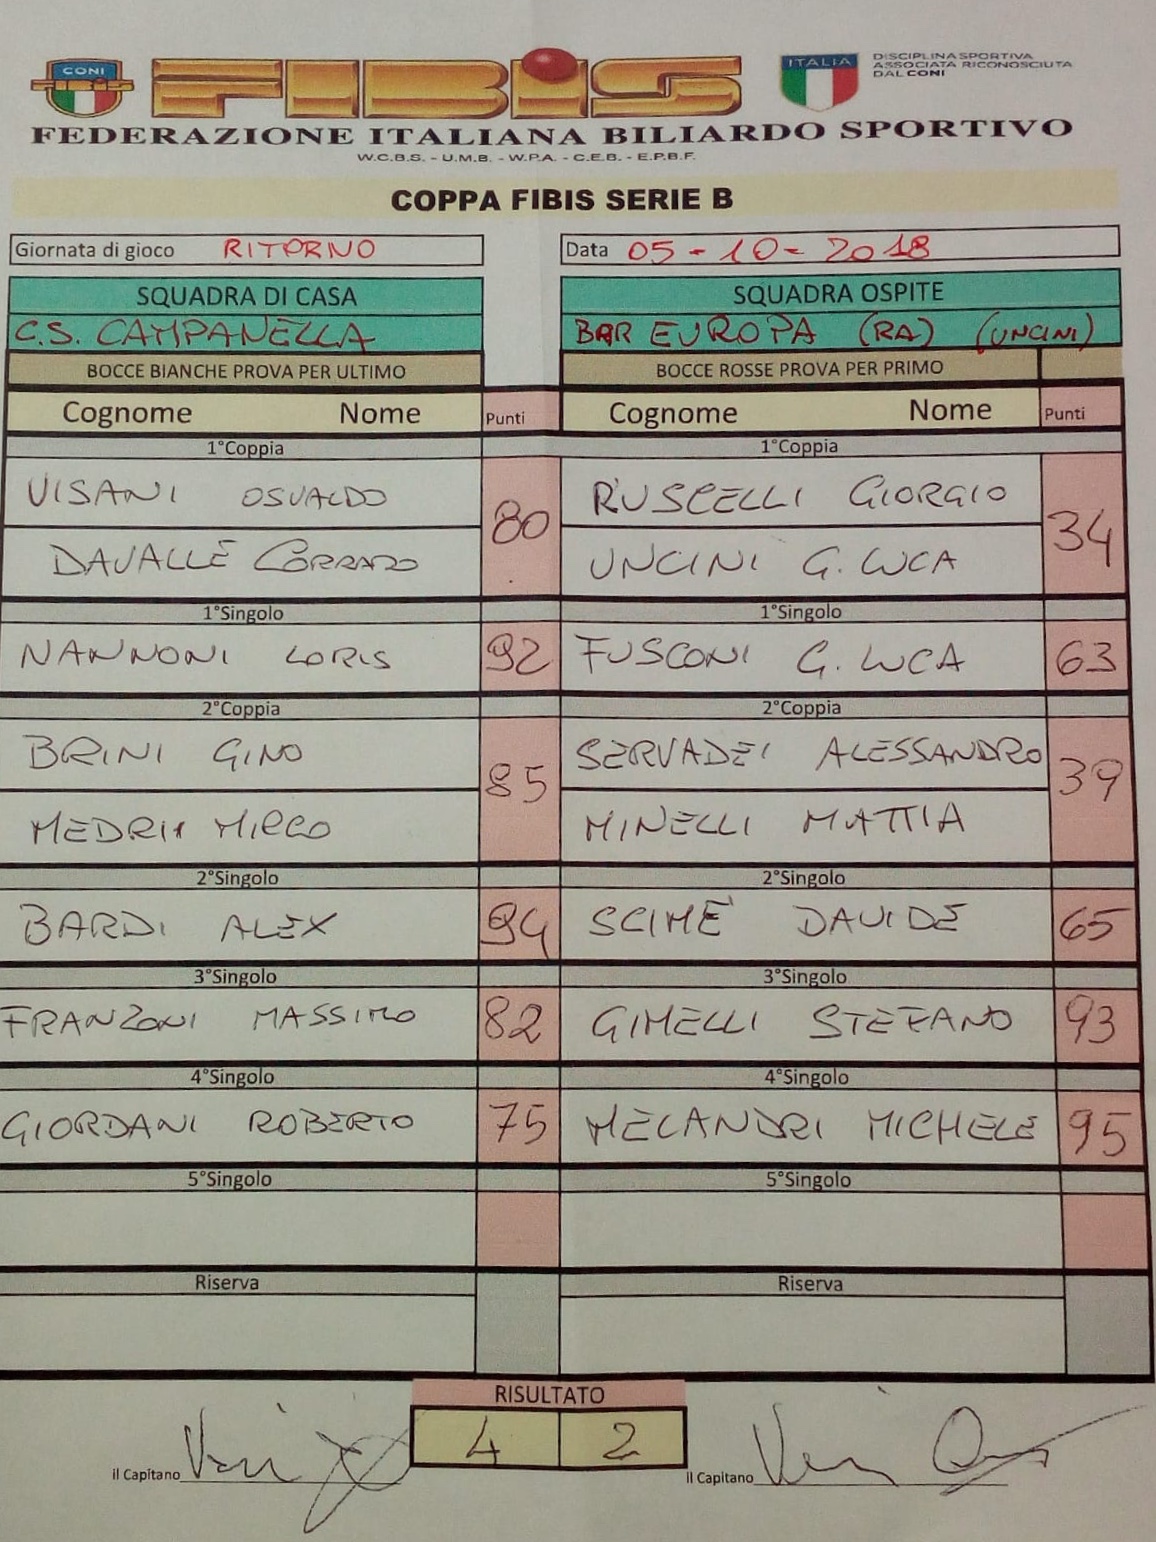 CONI
FIBIS
ITALIA
DISCIPLINA SPORTIVA
ASSOCIATA RICONOSCIUTA
DAL CONI
FEDERAZIONE ITALIANA BILIARDO SPORTIVO
W.C.B.S. - U.M.B. - W.P.A. - C.E.B. - E.P.B.F.
COPPA FIBIS SERIE B
Giornata di gioco RITORNO Data 05-10-2018
SQUADRA DI CASA SQUADRA OSPITE
C.S. CAMPANELLA BAR EUROPA (RA) (UNCINI)
BOCCE BIANCHE PROVA PER ULTIMO BOCCE ROSSE PROVA PER PRIMO
Cognome Nome Punti Cognome Nome Punti
1°Coppia 1°Coppia
VISANI OSVALDO 80 RUSCELLI GIORGIO 34
DAVALLE CORRADO UNCINI G. LUCA
1°Singolo 1°Singolo
NANNONI LORIS 92 FUSCONI G. LUCA 63
2°Coppia 2°Coppia
BRINI GINO 85 SERVADEI ALESSANDRO 39
MEDRI MIRCO MINELLI MATTIA
2°Singolo 2°Singolo
BARDI ALEX 94 SCIME' DAVIDE 65
3°Singolo 3°Singolo
FRANZONI MASSIMO 82 GIMELLI STEFANO 93
4°Singolo 4°Singolo
GIORDANI ROBERTO 75 MELANDRI MICHELE 95
5°Singolo 5°Singolo
Riserva Riserva
RISULTATO
4 2
il Capitano il Capitano